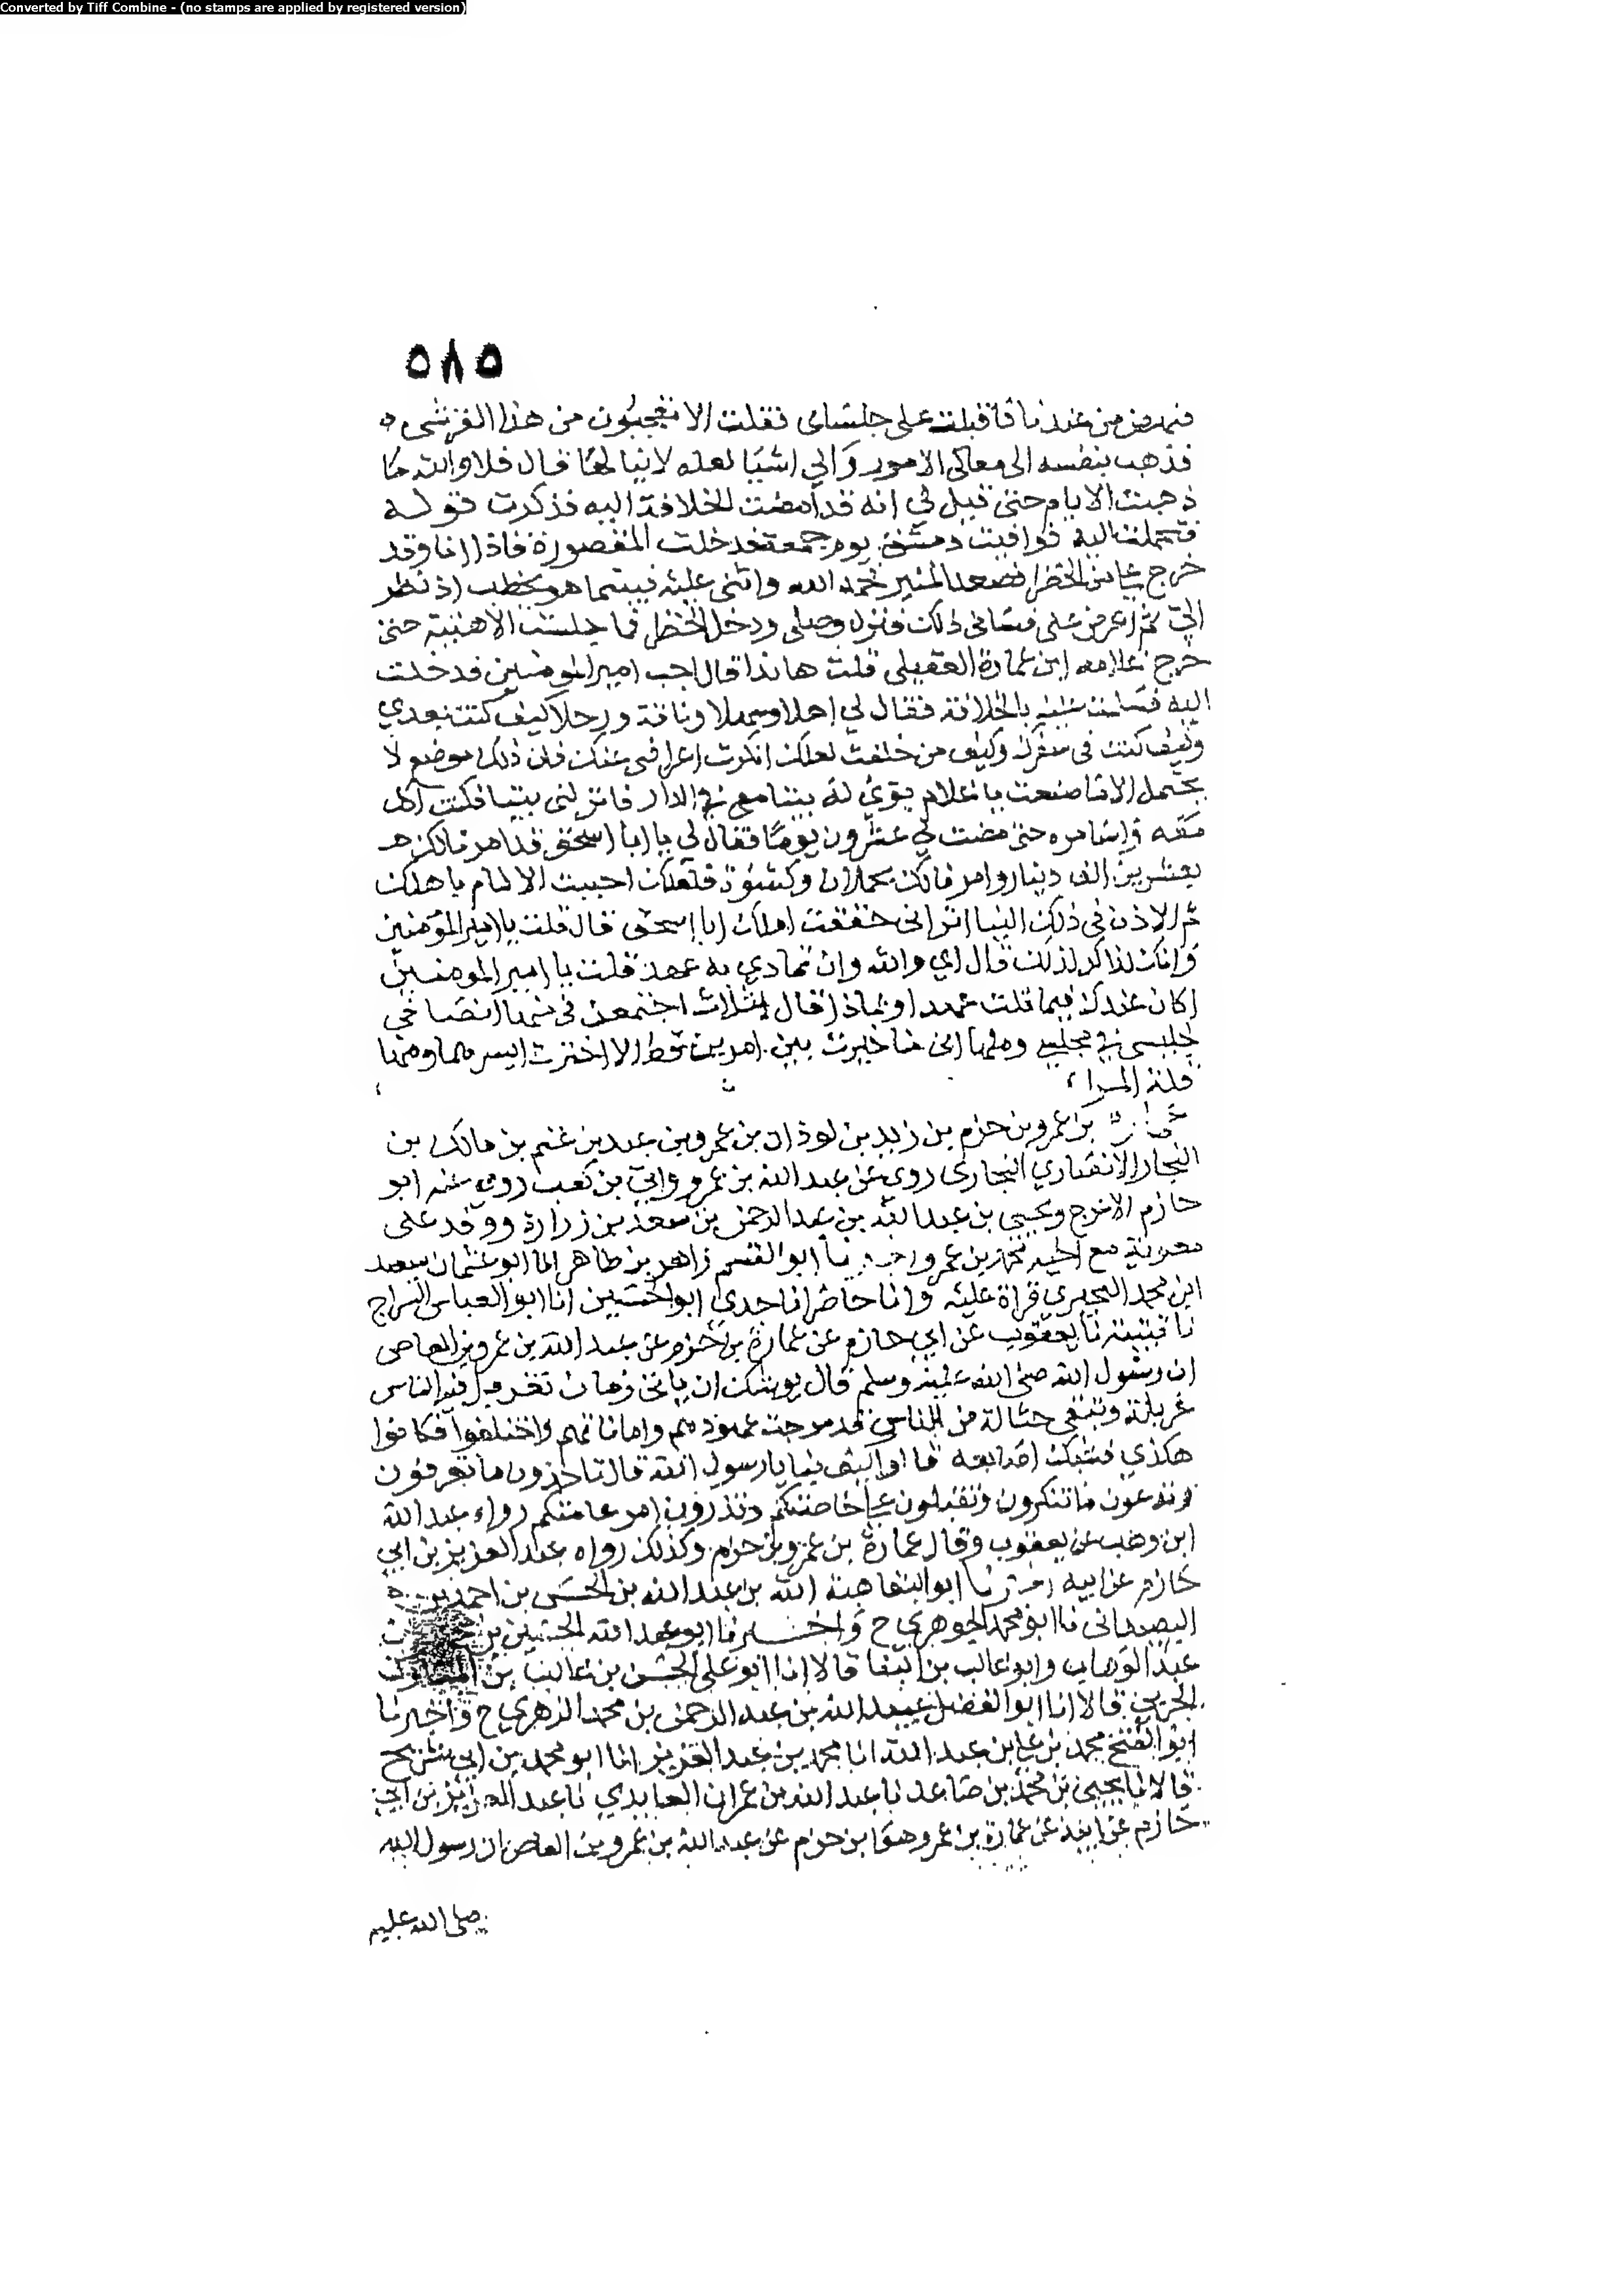 Converted by Tiff Combine - (no stamps are applied by registered version)
٥٨٥
فنهض من عندنا فاقبلت على جلساى فقلت الا تعجبون من هذا القرشى
فذهب بنفسه الى معالى الامور والي اشيا لعله لا ينالها قال فلا والله ما
ذهبت الايام حتى قيل لي انه قد افضت الخلافة اليه فذكرت قوله
فتحملت اليه فوافيت دمشق يوم جمعة فدخلت المقصورة فاذا انا وقد
خرج علي من الخضرا فصعد المنبر فحمد الله واثنى عليه فبينما هو يخطب اذ نظر
الي ثم اعرض عنى فساني ذلك فنزل وصلى ودخل الخضرا فما جلست الا هنيهة حتى
خرج غلامه ابن عمارة العقيلى قلت هانذا قال اجب امير المومنين فدخلت
اليه فسلمت عليه بالخلافة فقال لي اهلا وسهلا وناقة ورحلا كيف كنت بعدي
وكيف كنت في سفرك وكيف من خلفت لعلك انكرت اعراضى عنك فان ذلك موضع لا
يحتمل الا ما صنعت يا غلام بوئ له بيتا معي في الدار فانزلنى بيتا فكنت اكل
معه واسامره حتى مضت لي عشرون يوما فقال لي يا ابا اسحق قد امرنا لك
بعشرين الف دينار وامرنا لك بحملان وكسوة فلعلك احببت الالمام باهلك
ثم الاذن في ذلك الينا اترانى حققت املك ابا اسحق قال قلت يا امير المؤمنين
وانك لذاكر لذلك قال اي والله وان تمادي به عهد قلت يا امير المومنين
اكان عندك فيما قلت عهد او بماذا قال لثلاث اجتمعن في منها انصافي
لجليسى في مجلسي ومنها انى ما خيرت بين امرين قط الا اخترت ايسرهما ومنها
قلة المراء
بن عمرو بن حزم بن زيد بن لوذان بن عمرو بن عبد بن غنم بن مالك بن
النجار الانصاري النجارى روى عن عبد الله بن عمرو وابي بن كعب روى عنه ابو
حازم الاعرج ويحيى بن عبد الله بن عبد الرحمن بن سعد بن زرارة ووفد على
معوية مع اخيه محمد بن عمرو ابو القسم زاهر بن طاهر انا ابو عثمان سعيد
ابن محمد البحيري قراة عليه وانا حاضر انا جدي ابو الحسين انا ابو العباس السراج
نا قتيبة نا يعقوب عن ابي حازم عن عمارة بن حزم عن عبد الله بن عمرو بن العاصى
ان رسول الله صلى الله عليه وسلم قال يوشك ان ياتى زمان تغربل فيه الناس
غربلة وتبقى حثالة من الناس قد مرجت عهودهم واماناتهم واختلفوا فكانوا
هكذي فشبك اصابعه قالوا كيف بنا يا رسول الله قال تاخذون ما تعرفون
وتدعون ما تنكرون وتقبلون على خاصتكم وتذرون امر عامتكم رواه عبد الله
ابن وهب عن يعقوب وقال عمارة بن عمرو بن حزم وكذلك رواه عبد العزيز بن ابي
حازم عن ابيه ابو البقا هبة الله بن عبد الله بن الحسن بن احمد
البصيدانى نا ابو محمد الجوهري ح واخبرنا ابو عبد الله الحسين بن
عبد الوهاب وابو غالب بن البنا قالا انا ابو على الحسن بن غالب بن المبارك
الحربي قالا انا ابو الفضل عبيد الله بن عبد الرحمن بن محمد الزهري ح واخبرنا
ابو الفتح محمد بن علي بن عبد الله انا محمد بن عبد العزيز انا ابو محمد بن ابي شريح
قالا انا يحيى بن محمد بن صاعد نا عبد الله بن عمران العابدي نا عبد العزيز بن ابي
حازم عن ابيه عن عمارة بن عمرو هو ابن حزم عن عبد الله بن عمرو بن العاص ان رسول الله
صلى الله عليه